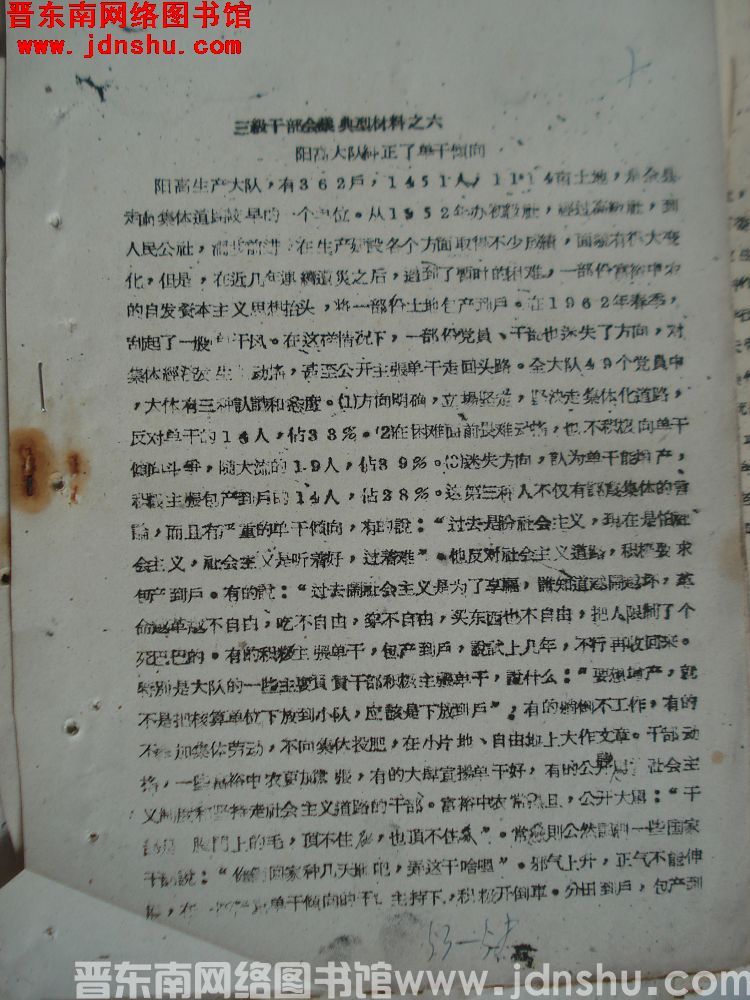 晋东南网络图书馆
www.jdnshu.com
三級干部会議典型材料之六
阳高大队糾正了单干傾向
阳高生产大队，有362戶，1451人，1114亩土地，是全县
走向集体道路较早的一个单位。从1952年办初級社，經过高級社，到
人民公社，不断前进，在生产建設各个方面取得不少成績，面貌有很大变
化，但是，在近几年連續遭災之后，遇到了暫时的困难，一部份富裕中农
的自发資本主义思想抬头，将一部份土地包产到戶。在1962年春季，
刮起了一股单干风。在这种情况下，一部份党員、干部也迷失了方向，对
集体經济发生了动搖，甚至公开主張单干走回头路。全大队49个党員中
，大体有三种認識和态度。(1)方向明确，立場坚定，坚决走集体化道路，
反对单干的16人，佔33%。(2)在困难面前畏难动搖，也不积极向单干
傾向斗争，随大流的19人，佔39%。(3)迷失方向，認为单干能增产，
积极主張包产到戶的14人，佔28%。这第三种人不仅有詆毁集体的言
論，而且有严重的单干傾向，有的說：“过去是盼社会主义，現在是怕社
会主义，社会主义是听着好，过着难”。他反对社会主义道路，积极要求
包产到戶。有的說：“过去鬧社会主义是为了享福，誰知道越鬧越坏，革
命越革越不自由，吃不自由，穿不自由，买东西也不自由，把人限制了个
死巴巴的。有的积极主張单干，包产到戶，說試上几年，不行再收回来。
特別是大队的一些主要負責干部积极主張单干，說什么：“要想增产，就
不是把核算单位下放到小队，应該是下放到戶”，有的躺倒不工作，有的
不参加集体劳动，不向集体投肥，在小片地、自由地上大作文章。干部动
搖，一些富裕中农更加囂張，有的大肆宣揚单干好，有的公开 社会主
义制度和坚持走社会主义道路的干部。富裕中农常 且，公开大罵：“干
部是 門上的毛，頂不住 ，也頂不住 ”。常 則公然諷刺一些国家
干部說：“你們回家种几天地吧，弄这干啥哩”。邪气上升，正气不能伸
張，在 单干傾向的干 主持下，积极开倒車。分田到戶，包产到
53—54
晋东南网络图书馆 www.jdnshu.com